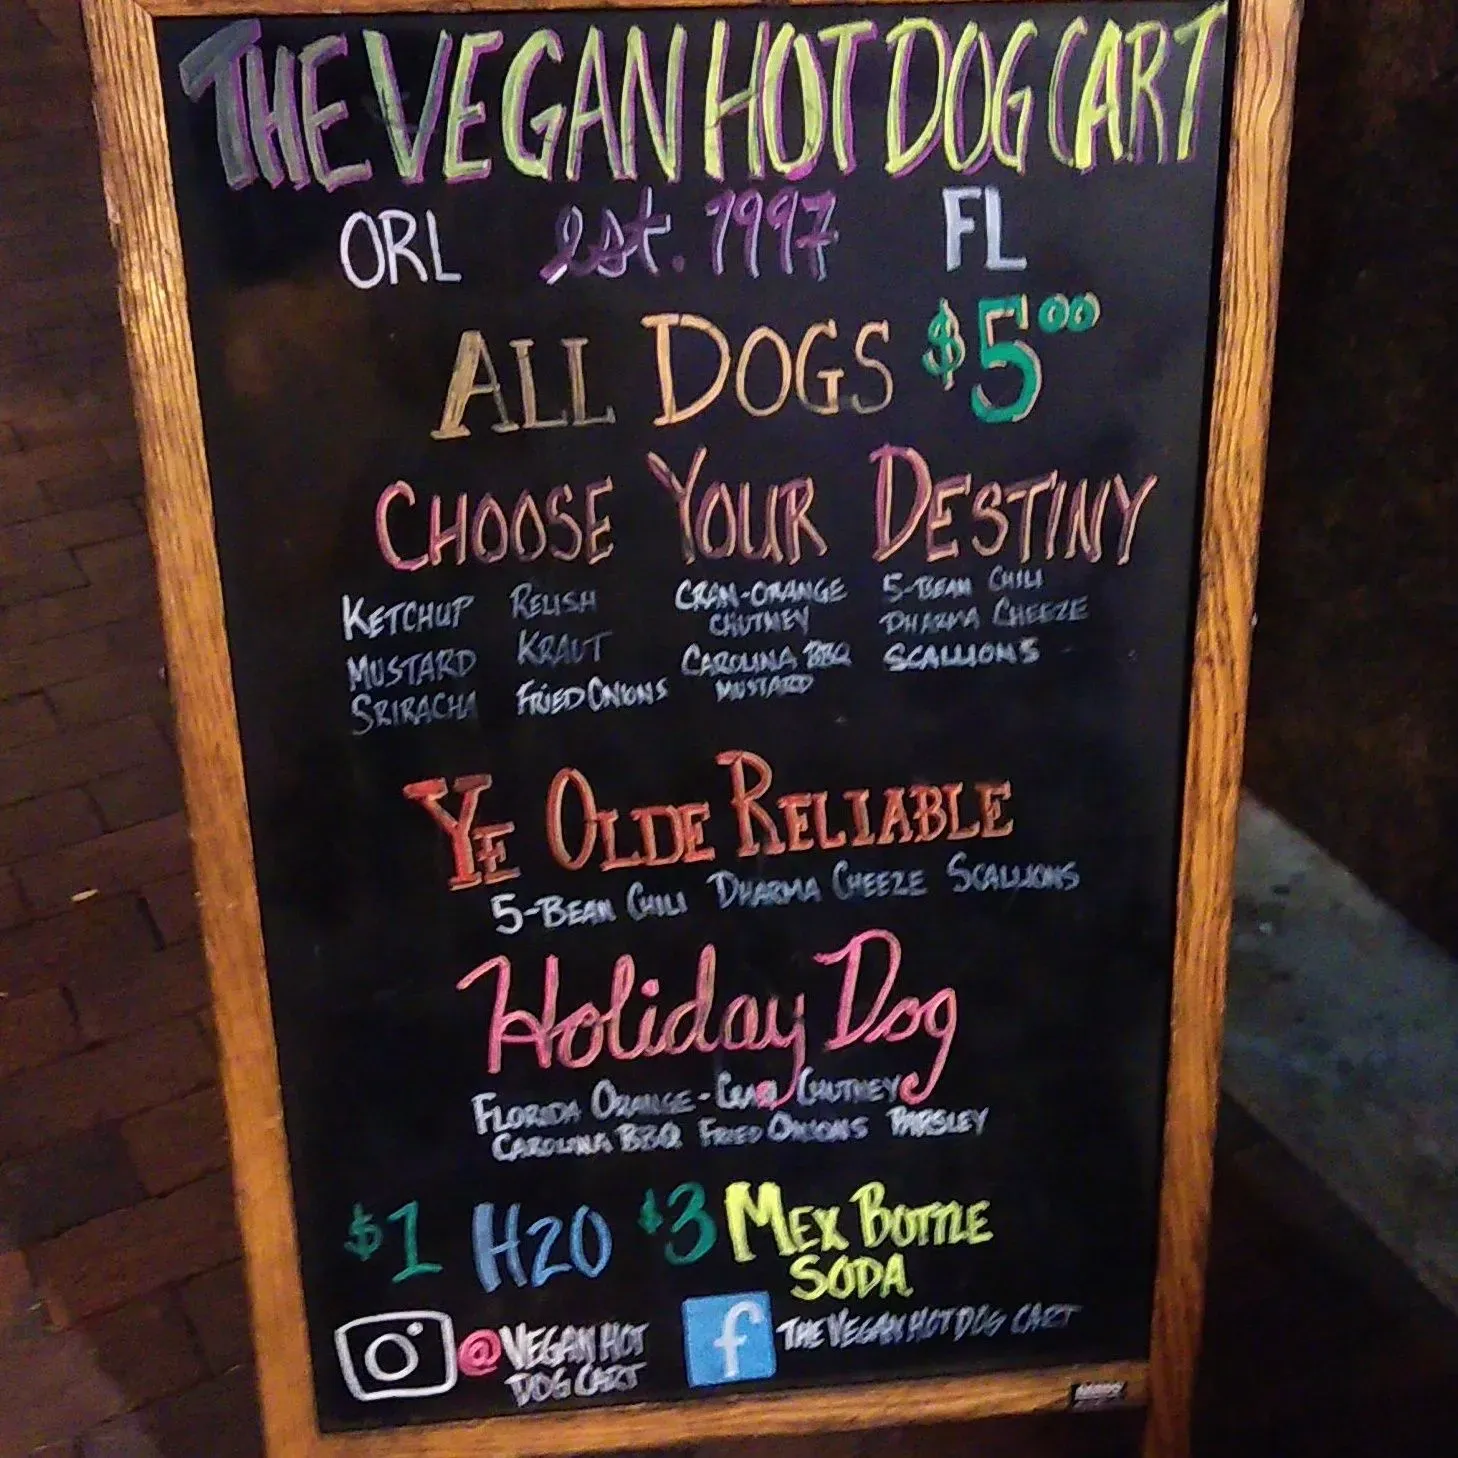 THE VEGAN HOT DOG CART
ORL est. 1997 FL
ALL DOGS $5.00
CHOOSE YOUR DESTINY
KETCHUP RELISH CRAN-ORANGE CHUTNEY 5-BEAN CHILI
MUSTARD KRAUT CAROLINA BBQ MUSTARD DHARMA CHEEZE
SRIRACHA FRIED ONIONS SCALLIONS
YE OLDE RELIABLE
5-BEAN CHILI DHARMA CHEEZE SCALLIONS
Holiday Dog
FLORIDA ORANGE-CRAN CHUTNEY
CAROLINA BBQ FRIED ONIONS PARSLEY
$1 H2O $3 MEX BOTTLE
SODA
@VEGAN HOT
DOG CART
f THE VEGAN HOT DOG CART